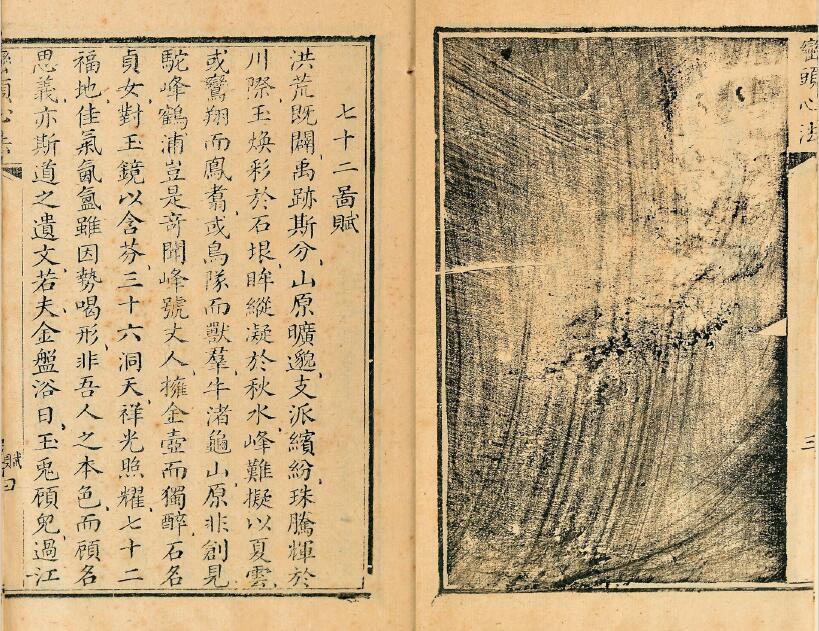 巒頭心法
三
七十二圖賦
洪荒既闢禹跡斯分山原曠邈支派繽紛珠騰輝於
川際玉煥彩於石垠眸縱凝於秋水峰難擬以夏雲
或鸞翔而鳳翥或鳥隊而獸羣牛渚龜山原非創見
駝峰鶴浦豈是奇聞峰號丈人擁金壺而獨醉石名
貞女對玉鏡以含芬三十六洞天祥光照耀七十二
福地佳氣氤氳雖因勢喝形非吾人之本色而顧名
思義亦斯道之遺文若夫金盤浴日玉兎顧兒過江
巒頭心法
賦